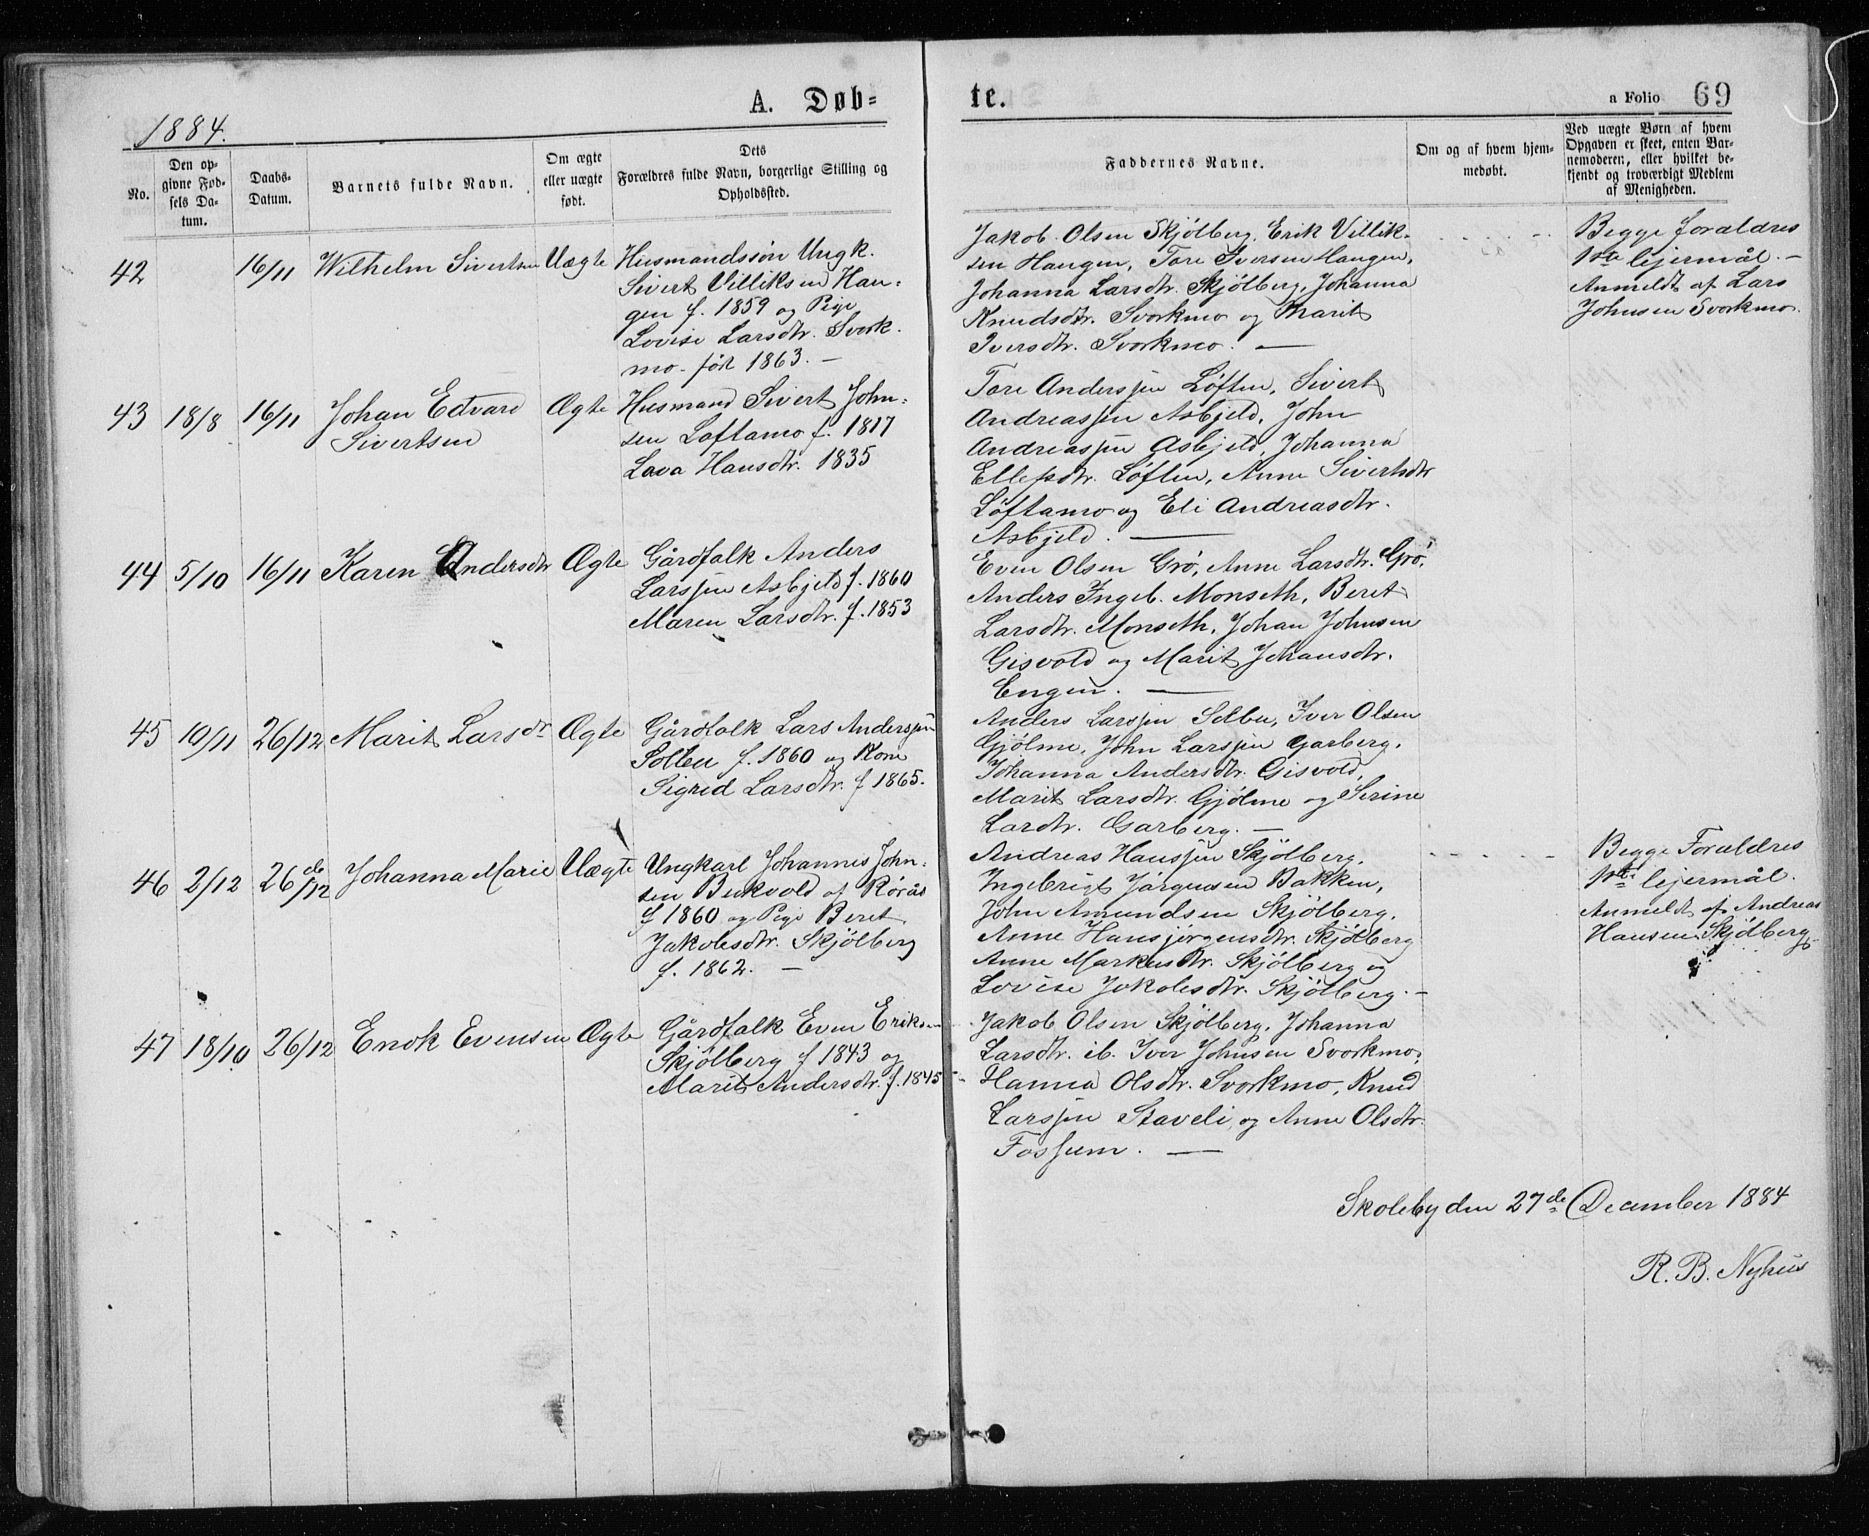 A. Døb=
te.
a Folio 69
1884.
No.
Den op-
givne Fød-
sels Da-
tum.
Daabs-
Datum.
Barnets fulde Navn.
Om ægte
eller uægte
født.
Dets
Forældres fulde Navn, borgerlige Stilling og
Opholdssted.
Faddernes Navne.
Om og af hvem hjem-
medøbt.
Ved uægte Børn af hvem
Opgaven er skeet, enten Bar-
nemoderen, eller hvilket be-
kjendt og troværdigt Medlem
af Menigheden.
42
16/11
Wilhelm Sivertsen
Uægte
Husmandssøn Ungk.
Sivert Villiksen Hau-
gen f. 1859 og Pige
Lovise Larsdtr. Svork-
mo. før 1863. —
Jakob Olsen Skjølberg, Erik Villik-
sen Haugen, Tore Iversen Haugen,
Johanna Larsdtr. Skjølberg, Johanna
Knudsdtr. Svorkmo og Marit
Iversdtr. Svorkmo. —
Begge foraldres
1ste lejermål. —
Anmeldt af Lars
Johnsen Svorkmo.
43
18/8
16/11
Johan Edvard
Sivertsen
Ægte
Husmand Sivert John-
sen Løftamo f. 1817
Lava Hansdtr. 1835
Tore Anderssen Løften, Sivert
Andreassen Asbjeld, John
Andreassen Asbjeld, Johanna
Ellefsdtr. Løften, Anne Sivertsdtr
Løftamo og Eli Andreasdtr.
Asbjeld. —
44
5/10
16/11
Karen Andersdtr
Ægte
Gårdfolk Anders
Larssen Asbjeld f. 1860
Maren Larsdtr. f. 1853
Even Olsen Grø, Anne Larsdtr. Grø,
Anders Ingeb. Monseth, Beret
Larsdtr. Monseth, Johan Johnsen
Gisvold og Marit Johansdtr.
Engen. —
45
10/11
26/12
Marit Larsdtr
Ægte
Gårdfolk Lars Anderssen
Solbu f. 1860 og Kone
Sigrid Larsdtr. f 1865.
Anders Larssen Solbu, Iver Olsen
Gjølme, John Larssen Garberg,
Johanna Andersdtr. Gisvold,
Marit Larsdtr. Gjølme og Serine
Larsdtr. Garberg. —
46
2/12
26de/12
Johanna Marie
Uægte
Ungkarl Johannes John-
sen Bukvold af Rørås
f 1860 og Pige Beret
Jakobsdtr. Skjølberg
f. 1862. —
Andreas Hanssen Skjølberg,
Ingebrigt Jørgensen Bakken,
John Amundsen Skjølberg,
Anne Hansjørgensdtr. Skjølberg
Anne Markusdtr. Skjølberg og
Lovise Jakobsdtr. Skjølberg. —
Begge Foraldres
1ste lejermål.
Anmeldt af Andreas
Hansen Skjølberg
47
18/10
26/12
Enok Evensen
Ægte
Gårdfolk Even Eriksen
Skjølberg f 1843 og
Marit Andersdtr. f. 1845
Jakob Olsen Skjølberg, Johanna
Larsdtr. ib. Iver Johnsen Svorkmo,
Hanna Olsdtr. Svorkmo, Knud
Larssen Staveli, og Anne Olsdtr
Fossum. —
Skoleby den 27de December 1884
R. B. Nyhus